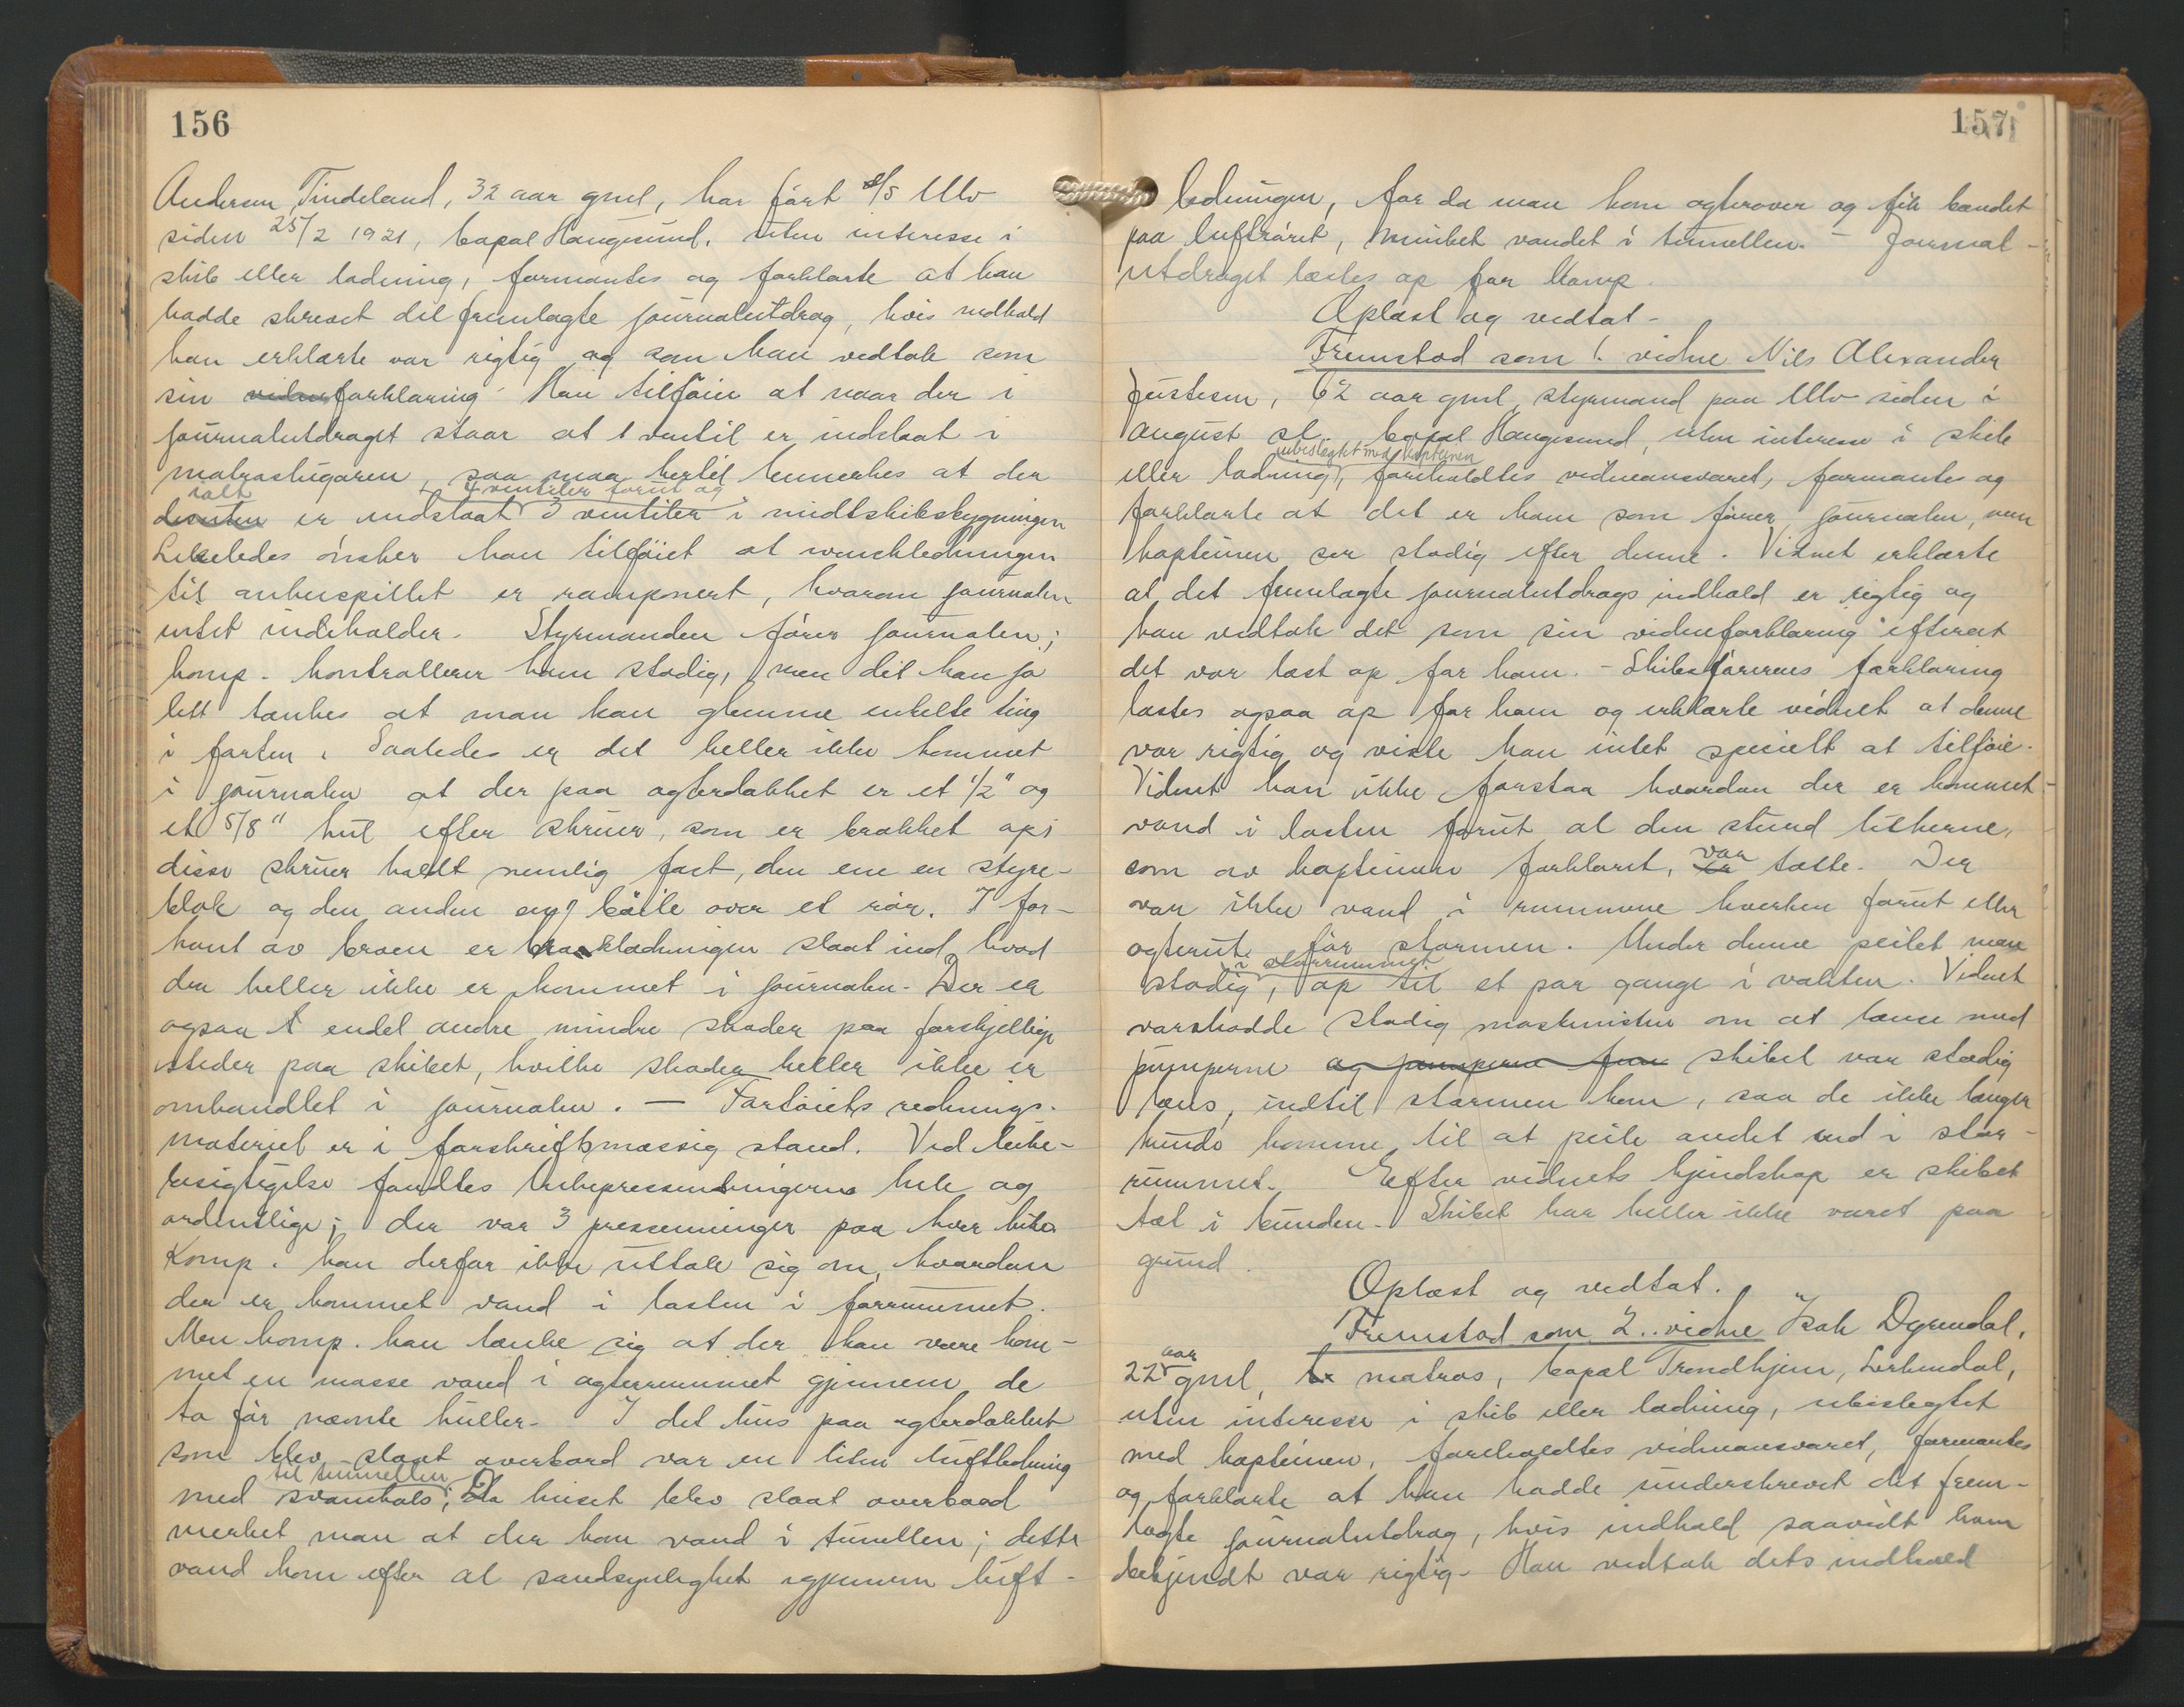 156
Andersen Tindeland, 32 aar gml, har ført s/s Ulv
siden 25/2 1921, bopæl Haugesund, uten interesse i
skib eller ladning, formantes og forklarte at han
hadde skrevet det fremlagte journalutdrag, hvis indhold
han erklærte var rigtig og som han vedtok som
sin vidneforklaring. Han tilføier at naar der i
journalutdraget staar at 1 ventil er indslaat i
matroslugaren, saa maa hertil bemerkes at der
ialt 4 ventiler forut og
desuten er indslaat 3 ventiler i midtskibsbygningen
Likeledes ønsker han tilføiet at winchledningen
til ankerspillet er ramponert, hvorom journalen
intet indeholder. Styrmanden fører journalen;
komp. kontrollerer ham stadig, men det kan jo
lett tænkes at man kan glemme enkelte ting
i farten. Saaledes er det heller ikke kommet
i journalen at der paa agterdækket er et 1/2" og
et 5/8" hul efter skruer, som er brækket op;
disse skruer holdt nemlig fast, den ene en styre-
blok og den anden en bøile over et rør. I for-
kant av broen er broklædningen slaat ind, hvad
der heller ikke er kommet i journalen. Der er
ogsaa endel andre mindre skader paa forskjellige
steder paa skibet, hvilke skader heller ikke er
omhandlet i journalen. — Fartøiets rednings-
materiel er i forskriftsmæssig stand. Ved luke-
besigtigelse fandtes lukepresenningerne hele og
ordentlige; der var 3 presenninger paa hver luke.
Komp. kan derfor ikke uttale sig om, hvordan
der er kommet vand i lasten i forrummet.
Men komp. kan tænke sig at der kan være kom-
met en masse vand i agterrummet gjennem de
to før nævnte huller. I det hus paa agterdækket
som blev slaat overbord var en liten luftledning
til tunnellen
med svanehals; Da huset blev slaat overbord
merket man at der kom vand i tunellen; dette
vand kom efter al sandsynlighet igjennem luft-
157
ledningen, for da man kom agterover og fik bændet
paa luftrøret, minket vandet i tunnellen. – Journal-
utdraget læstes op for komp.
Oplæst og vedtat –
Fremstod som 1. vidne Nils Alexander
Justesen, 62 aar gml, styrmand paa Ulv siden i
august sl. bopæl Haugesund, uten interesse i skib
ubeslegtet med kapteinen
eller ladning, foreholdtes vidneansvaret, formantes og
forklarte at det er ham som fører journalen, men
kapteinen ser stadig efter denne. Vidnet erklærte
at det fremlagte journalutdrags indhold er rigtig og
han vedtok det som sin vidneforklaring efterat
det var læst op for ham. – Skibsførerens forklaring
læstes ogsaa op for ham og erklærte vidnet at denne
var rigtig og visste han intet specielt at tilføie.
Vidnet kan ikke forstaa hvordan der er kommet
vand i lasten forut al den stund lukerne,
som av kapteinen forklaret, er var tætte. Der
var ikke vand i rummene hverken forut eller
agterut før stormen. Under denne peilet man
i storrummet
stadig, op til et par gange i vakten. Vidnet
varskodde stadig maskinisten om at lænse med
pumperne og pumperne fra skibet var stadig
læns, indtil stormen kom, saa de ikke længer
kunde komme til at peile andet end i stor-
rummet. Efter vidnets kjendskap er skibet
tæt i bunden. Skibet har heller ikke været paa
grund.
Oplæst og vedtat.
Fremstod som 2. vidne Isak Dyrendal,
aar
22 gml, matros, bopæl Trondhjem, Lerkendal,
uten interesse i skib eller ladning, ubeslegtet
med kapteinen, foreholdtes vidneansvaret, formantes
og forklarte at han hadde underskrevet det frem-
lagte journalutdrag, hvis indhold saavidt ham
bekjendt var rigtig. Han vedtok dets indhold